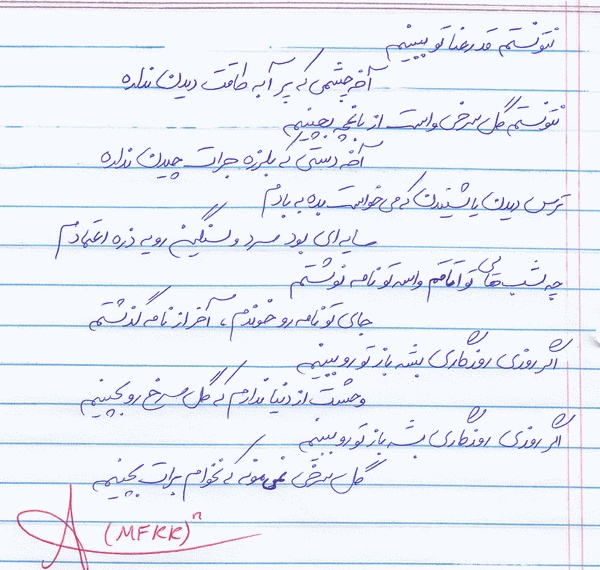 نتونستم قد رعنا تو ببینم
آخه چشمی که پر آبه طاقت دیدن نداره
نتونستم گل سرخی واست از باغچه بچینم
آخه دستی که بلرزه جرات چیدن نداره
ترس دیدن یا شنیدن که می خواست بده به بادم
سایه ای بود سرد و سنگین رو یه ذره اعتمادم
چه شب هایی تو اتاقم واسه تو نامه نوشتم
جای تو نامه رو خوندم، آخر از نامه گذشتم
اگر روزی روزگاری بشه باز تو رو ببینم
وحشت از دنیا ندارم که گل سرخ رو بچینم
اگر روزی روزگاری بشه باز تو رو ببینم
گل سرخی نمی مونه که نخوام برات بچینم
(MFKK)ⁿ